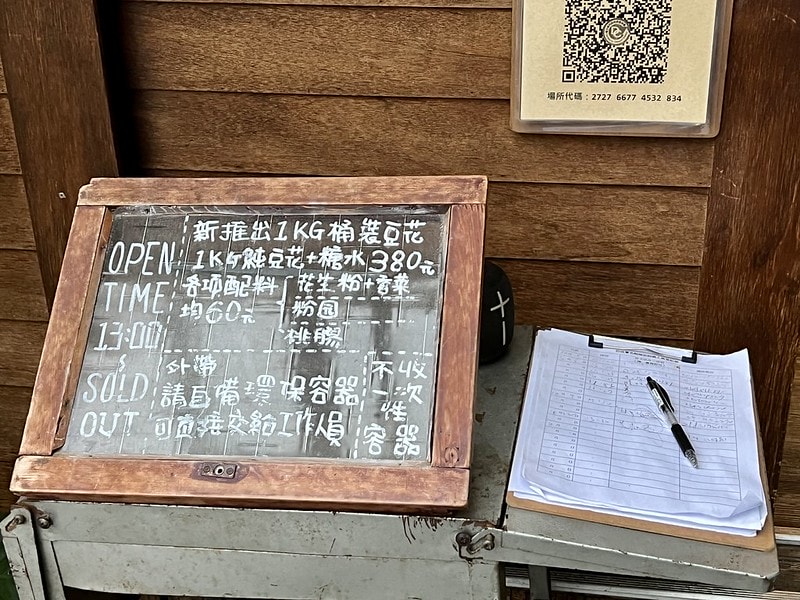 場所代碼：2727 6677 4532 834
OPEN
TIME
13:00
~
SOLD
OUT
新推出1KG桶裝豆花
1KG純豆花+糖水380元
各項配料
均60元
花生粉+香菜
粉圆
桃膠
外帶
請自備環保容器
可直接交給工作人員
不收
一次
性
容器